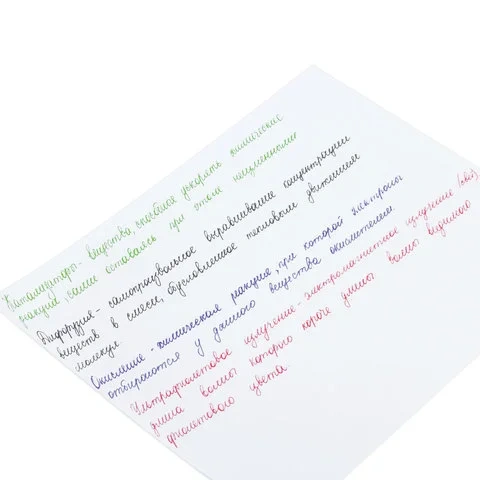 Катализаторы - вещества, способные ускорять химические
реакции, сами оставаясь при этом неизменными
Диффузия - самопроизвольное выравнивание концентрации
веществ в смеси, обусловленное тепловым движением
молекул.
Окисление - химическая реакция, при которой электроны
отбираются у данного вещества окислителем.
Ультрафиолетовое излучение - электромагнитное излучение
длина волны которого короче длины волны видимого
фиолетового света.